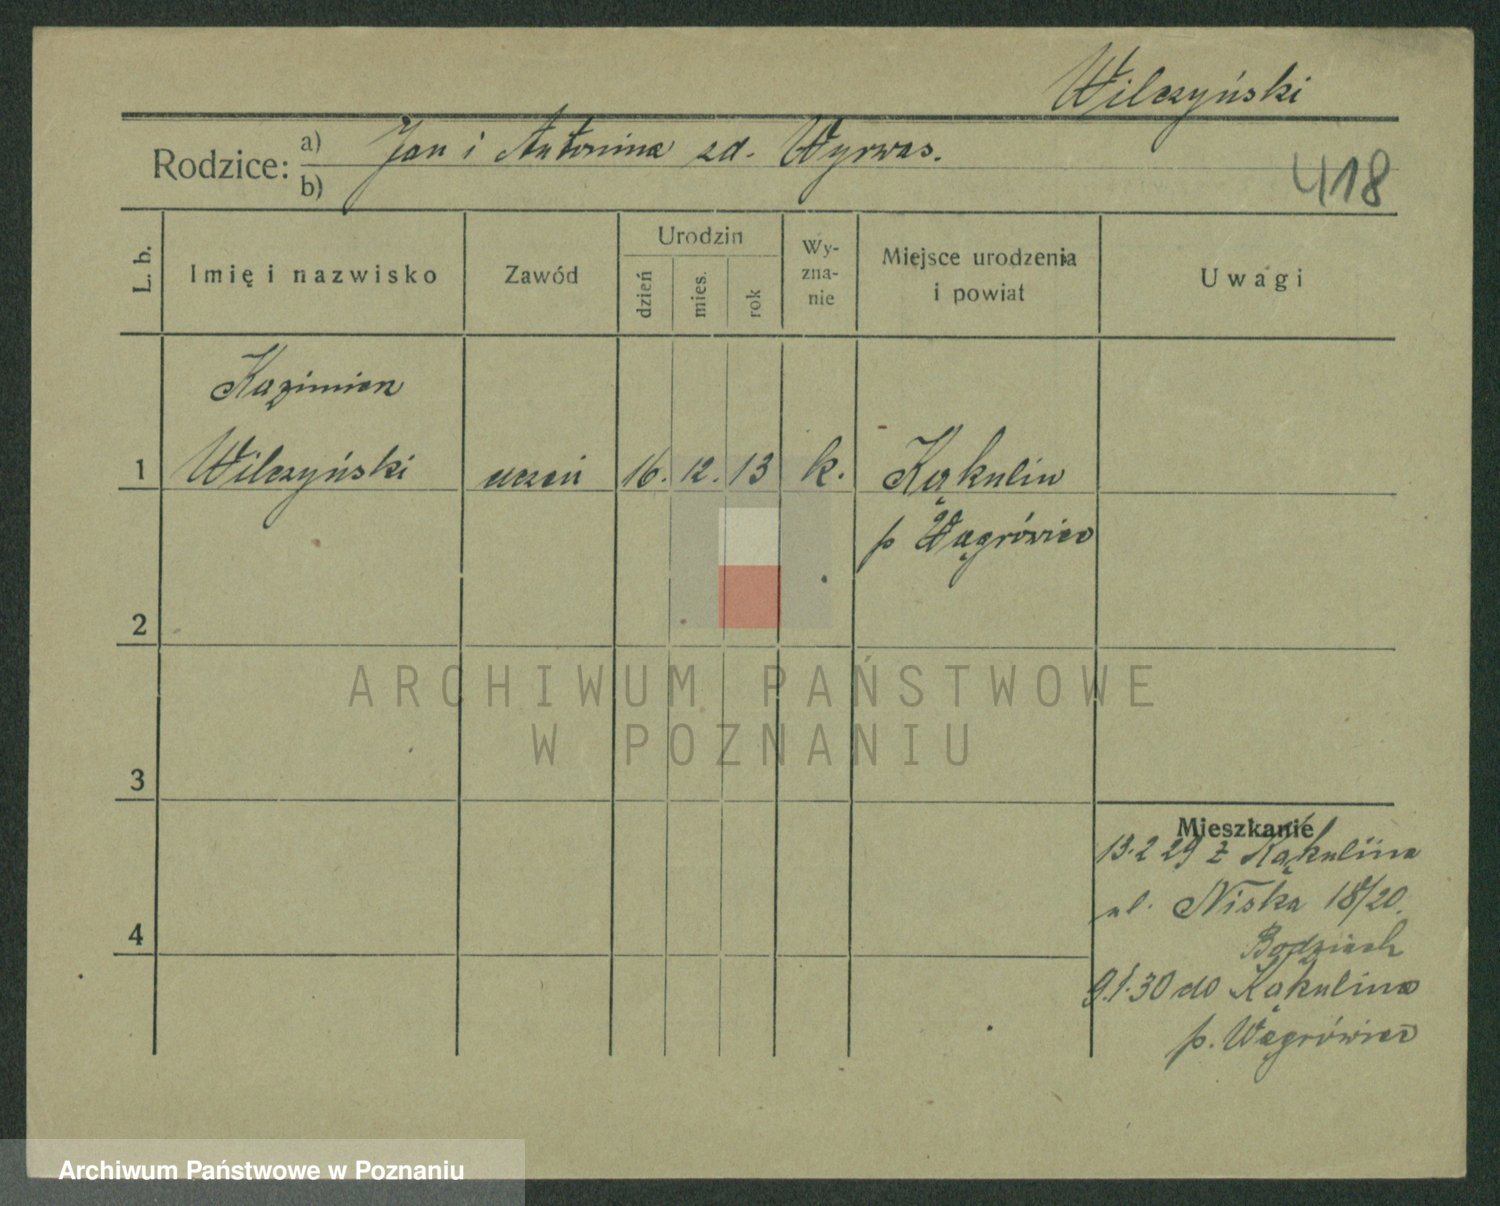 Wilczyński
Rodzice: a) Jan i Antonina zd. Wyrwas.
b)
418
L. b.
Imię i nazwisko
Zawód
Urodzin
dzień
mies.
rok
Wy-
zna-
nie
Miejsce urodzenia
i powiat
Uwagi
Kazimierz
1 Wilczyński uczeń 16. 12. 13 k. Kąkulin
p Wągrówiec
2
3
4
ARCHIWUM PAŃSTWOWE
W POZNANIU
Mieszkanie
13.2 29 z Kąkulina
ul. Niska 18/20.
9.1.30 do Kąkulina
p. Wągrówiec
Archiwum Państwowe w Poznaniu